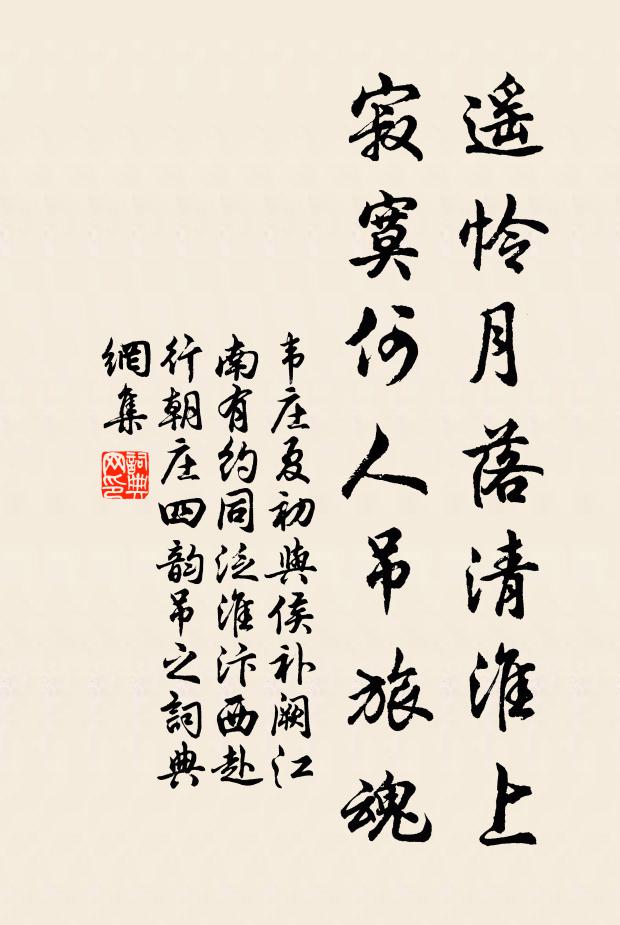 遥怜月落清淮上
寂寞何人吊旅魂
韦庄夏初與侯补阙江
南有约同泛淮汴西赴
行朝庄四韵吊之詞典
網集
詞典
网印